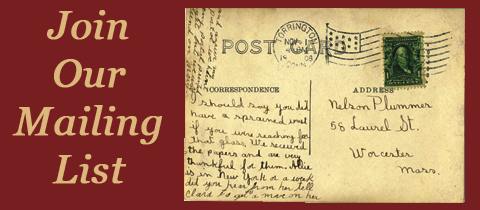 Join
Our
Mailing
List
TORRINGTON
NOV
CONN.
POST CARD
CORRESPONDENCE
ADDRESS
I should say you did
have a sprained wrist
if you were reaching for
that glass. We received
the papers and are very
thankful for them. Allie
is in New York for a week
did you hear from her. tell
Clara to get a move on her
Nelson Plummer
58 Laurel St.
Worcester
Mass.